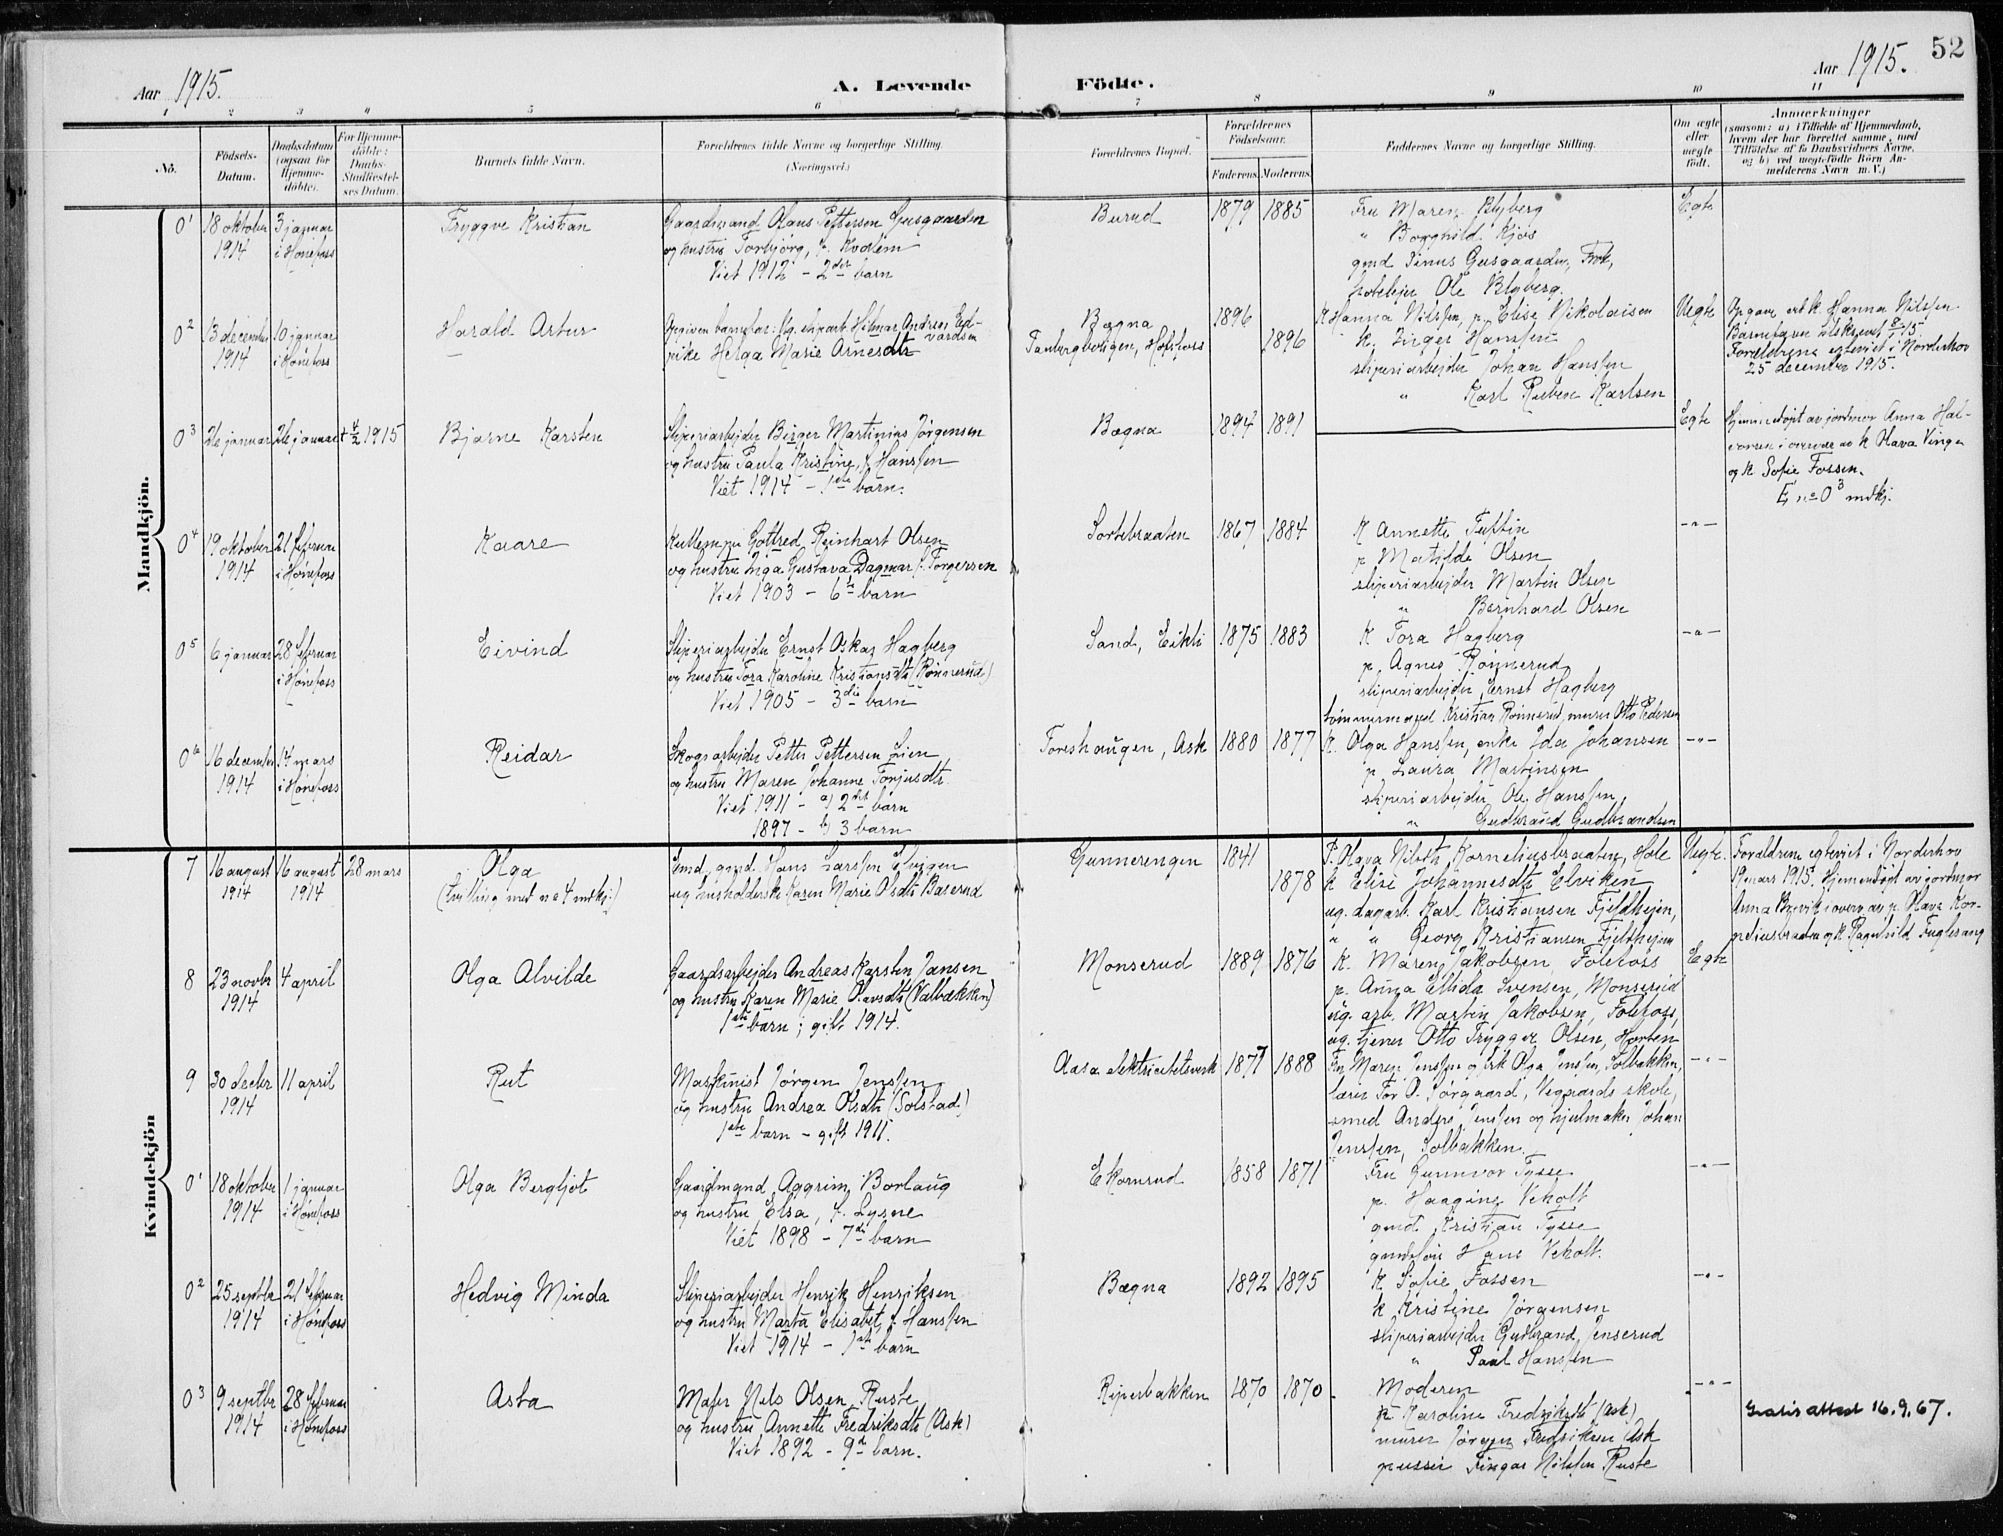 52
Aar 1915.
A. Levende Födte.
Aar 1915.
1 2 3 4 5 6 7 8 9 10 11
No.
Födsels-Datum.
Daabsdatum (ogsaa for Hjemme-döbte).
For Hjemme-döbte: Daabs-Stadfæstel-ses Datum.
Barnets fulde Navn.
Forældrenes fulde Navne og borgerlige Stilling. (Næringsvei.)
Forældrenes Bopæl.
Forældrenes Födselsaar.
Faderens. Moderens.
Faddernes Navne og borgerlige Stilling.
Om ægte eller uægte födt.
Anmærkninger
(saasom: a) i Tilfælde af Hjemmedaab, hvem der har forrettet samme, med Tilföielse af to Daabsvidners Navne, og b) ved uegte födte Börn Anmelderens Navn m. V.)
Mandkjön.
0¹ 18 oktober 1914 3 januar i Hönefoss
Tryggve Kristian
Gaardmand Olaus Pettersen Gusgaarden
og hustru Torbjörg, f. Kvalem
Viet 1912 - 2det barn
Burud 1879 1885
Fru Maren Blyberg
" Borghild Kjös
gmd Sinus Gusgaarden, Frok,
hoteleier Ole Blyberg.
Egte
0² 13 december 1914 10 januar i Hönefoss
Harald Artur
Opgiven barnefar: Ug. sliparb. Hilmar Andreas Edvardsen
pike Helga Marie Arnesdtr
Bægna 1896
Tanbergboligen, Hofsfoss 1896
K. Hanna Nilssen, p. Elise Nikolaisen
k. Inger Hanssen
sliperiarbejder Johan Hanssen
" Karl Ruben Karlsen
Uegte
Opgave ved k. Hanna Nilssen.
Forældrene egteviet i Norderhov
25 december 1915.
0³ 26 januar 26 januar 1915
Bjarne Karsten
Sliperiarbejder Birger Martinius Jörgensen
og hustru Paula Kristine, f. Hanssen
Viet 1914 - 1ste barn.
Bægna 1894 1891
Egte
Hjemmedöpt av jordmor Anna Halvorsen i overvær av k. Olava Vinger
og k. Sofie Fossen.
E no 0³ mdkj.
0⁴ 19 oktober 1914 21 februar i Hönefoss
Kaare
Gotfred Reinhart Olsen
og hustru Inga Gustava Dagmar f. Torgersen
Viet 1903 - 6te barn
Sortebraaten 1867 1884
K Annette Tuftin
p. Matilde Olsen
sliperiarbejder Martin Olsen
" Bernhard Olsen
-"-
0⁵ 6 januar 28 februar i Hönefoss
Eivind
Sliperiarbejder Ernst Oskar Hagberg
og hustru Tora Karoline Kristiansdtr (Rönnerud)
Viet 1905 - 3die barn
Sand, Eikli 1875 1883
K Tora Hagberg
p. Agnes Rönnerud
sliperiarbejder Ernst Hagberg
tömmermand Kristian Rönnerud, murer Otto Pedersen
-"-
0⁶ 16 december 1914 14 mars i Hönefoss
Reidar
Skogsarbejder Petter Pettersen Lien
og hustru Maren Johanne Torjusdtr.
Viet 1911 - a) 2det barn
1897 - b) 3 barn
Foreshaugen, Ask 1880 1877
K. Olga Hanssen, enke Ida Johansen
p. Laura Martinsen
sliperiarbejder Ole Hanssen,
" Gudbrand Gudbrandsen
-"-
Kvindekjön
7 16 august 1914 16 august 1914 28 mars
Olga
(tvilling med no 4 mdkj.)
Emd. gmd. Hans Larssen Elvigen
og husholderske Karen Marie Olsdtr Baserud
Gunnerengen 1841
1878
P. Olava Nilsdtr, Korneliusbraaten, Hole
k Elise Johannesdtr Elviken
ug. dagarb. Karl Kristiansen Fjeldhejen,
" " Georg Kristiansen Fjeldhejen
Uegte.
Forældrene egteviet i Norderhov
19 mars 1915. Hjemmedöpt av jordmor
Anna Brevik i overv. av p. Olava Korneliusbraaten og k. Ragnhild Fuglesang
8 23 novbr 1914 4 april
Olga Alvilde
Gaardsarbejder Andreas Karsten Jansen
og hustru Karen Marie Olavsdtr (Valbækken)
1ste barn; gift 1914.
Monserud 1889 1876
K. Maren Jakobsen, Folefoss
p. Anna Elida Svensen, Monserud
ug. arb. Martin Jakobsen, Folefoss,
ug. tjener Otto Trygger Olsen, Horten
Egte
9 30 decbr 1914 11 april
Rut
Maskinist Jörgen Jenssen
og hustru Andrea Olsdtr (Solstad)
1ste barn - gift 1911.
Aasa elektricitetsverk 1877 1888
Fru Maren Jenssen og frk Olga Jenssen, Solbakken,
lærer Tor O. Törgaard, Vegaards skole,
smed Anders Jenssen og hjulmaker Johan
Jenssen, Solbakken.
-"-
0¹ 18 oktober 1914 1 januar i Hönefoss
Olga Bergljot
Gaardmand Aggrim Borlaug
og hustru Elsa, f. Lysne
Viet 1898 - 7de barn
Ekornrud 1858 1871
Fru Gunnvor Tysse
p. Haagine Veholt
gmd. Kristian Tysse
gmdssön Hans Veholt.
-"-
0² 25 septbr 1914 21 februar i Hönefoss
Hedvig Minda
Sliperiarbejder Henrik Henriksen
og hustru Marta Elisabet, f. Hanssen
Viet 1914 - 1ste barn
Bægna 1892 1895
K Sofie Fossen
k Kristine Jörgensen
sliperiarbejder Gudbrand Jenserud
" Paul Hanssen
-"-
0³ 9 septbr 1914 28 februar i Hönefoss
Asta
Maler Nils Olsen Ruste
og hustru Annette Fredriksdtr (Ask)
Viet 1892 - 9de barn.
Ripersbakken 1870 1870
Moderen
k Karoline Fredriksdtr (Ask)
murer Jörgen Fredriksen Ask
pusser Fingar Nilssen Ruste
-"-
Gratis attest 16.9.67.